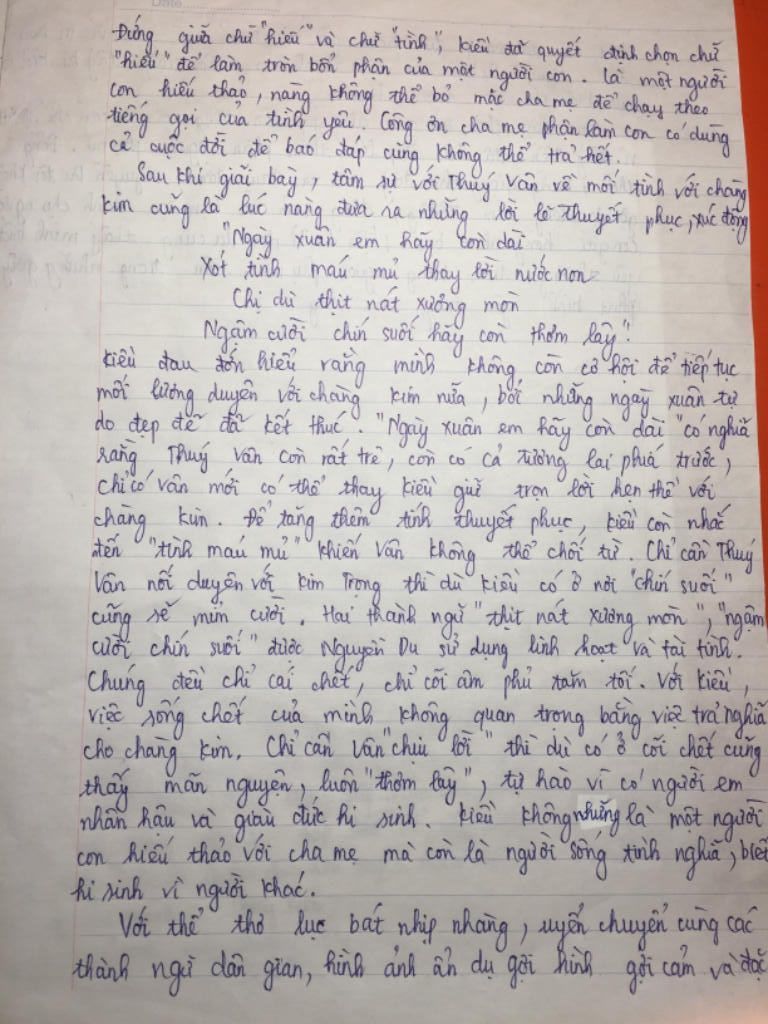 Date
Đứng giữa chữ "hiếu" và chữ "tình", kiều đã quyết định chọn chữ
"hiếu" để làm tròn bổn phận của một người con. Là một người
con hiếu thảo, nàng không thể bỏ mặc cha mẹ để chạy theo
tiếng gọi của tình yêu. Công ơn cha mẹ phận làm con có dùng
cả cuộc đời để báo đáp cũng không thể trả hết.
Sau khi giải bày, tâm sự với Thuý Vân về mối tình với chàng
kim cũng là lúc nàng đưa ra những lời lẽ thuyết phục, xúc động
"Ngày xuân em hãy còn dài
Xót tình máu mủ thay lời nước non
Chị dù thịt nát xương mòn
Ngậm cười chín suối hãy còn thơm lây".
kiều đau đớn hiểu rằng mình không còn cơ hội để tiếp tục
mối lương duyên với chàng kim nữa, bởi những ngày xuân tự
do đẹp đẽ đã kết thúc. "Ngày xuân em hãy còn dài" có nghĩa
rằng Thuý Vân còn rất trẻ, còn có cả tương lai phía trước,
chỉ có Vân mới có thể thay kiều giữ trọn lời hẹn thề với
chàng kim. Để tăng thêm tính thuyết phục, kiều còn nhắc
đến "tình máu mủ" khiến Vân không thể chối từ. Chỉ cần Thuý
Vân nối duyên với kim Trọng thì dù kiều có ở nơi "chín suối"
cũng sẽ mỉm cười. Hai thành ngữ "thịt nát xương mòn", "ngậm
cười chín suối" được Nguyễn Du sử dụng linh hoạt và tài tình.
Chúng đều chỉ cái chết, chỉ cõi âm phủ tăm tối. Với kiều,
việc sống chết của mình không quan trọng bằng việc trả nghĩa
cho chàng kim. Chỉ cần Vân "chịu lời" thì dù có ở cõi chết cũng
thấy mãn nguyện, luôn "thơm lây", tự hào vì có người em
nhân hậu và giàu đức hi sinh. kiều không những là một người
con hiếu thảo với cha mẹ mà còn là người sống tình nghĩa, biết
hi sinh vì người khác.
Với thể thơ lục bát nhịp nhàng, uyển chuyển cùng các
thành ngữ dân gian, hình ảnh ẩn dụ gợi hình gợi cảm và đặc